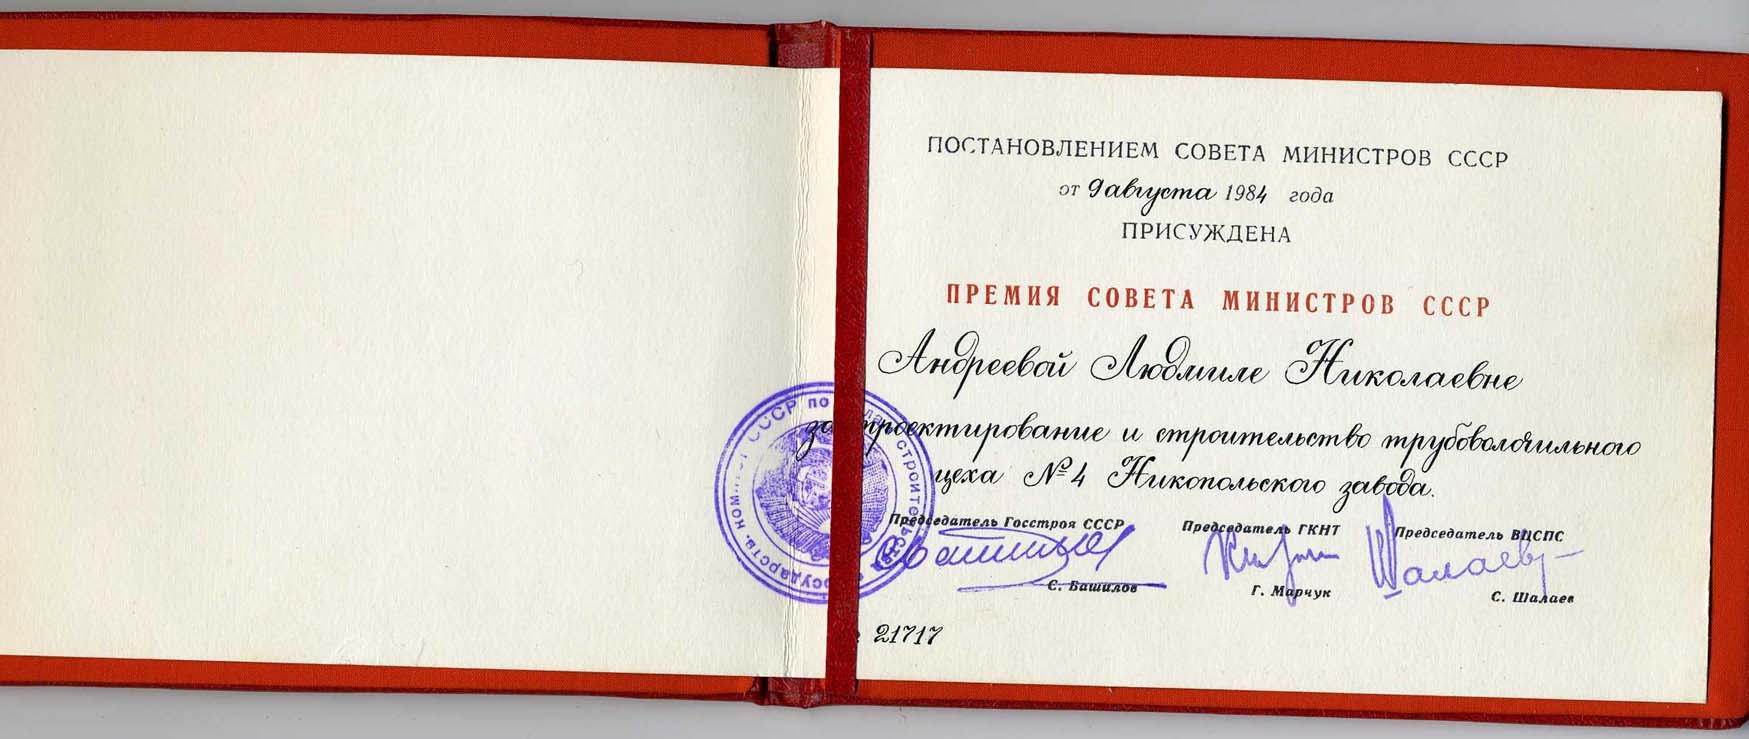 ПОСТАНОВЛЕНИЕМ СОВЕТА МИНИСТРОВ СССР
от 9 августа 1984 года
ПРИСУЖДЕНА
ПРЕМИЯ СОВЕТА МИНИСТРОВ СССР
Андреевой Людмиле Николаевне
за проектирование и строительство трубоволочильного
цеха № 4 Никопольского завода.
Председатель Госстроя СССР Председатель ГКНТ Председатель ВЦСПС
С. Башилов Г. Марчук С. Шалаев
21717
СССР по